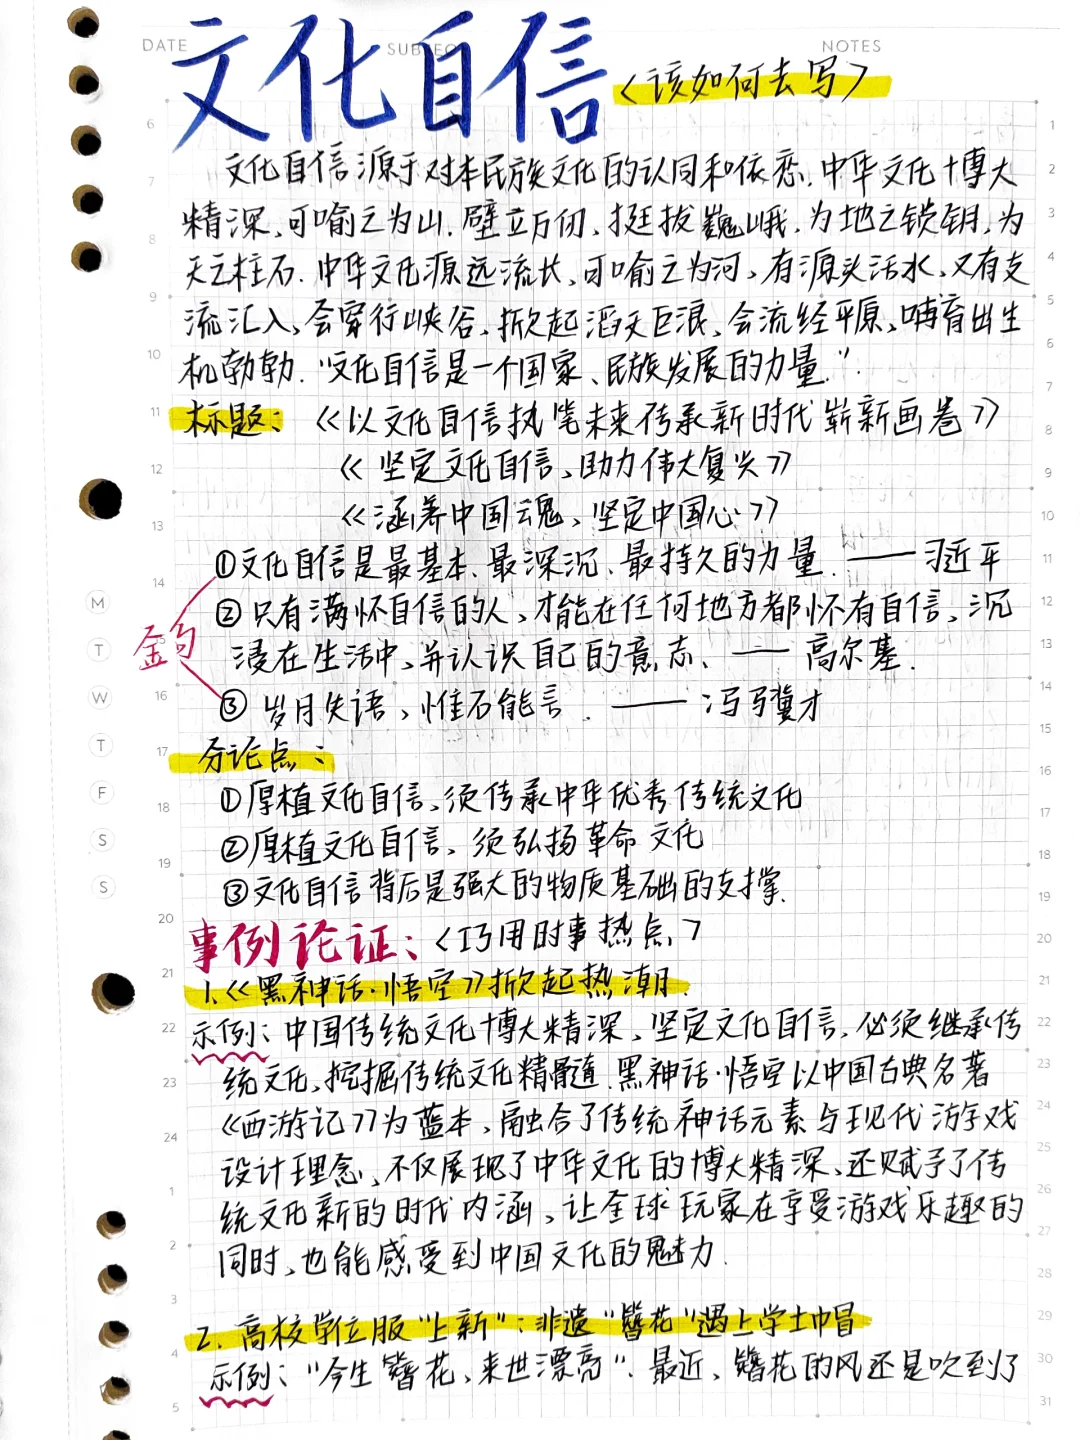 DATE
SUBJECT
NOTES
文化自信
<该如何去写>
文化自信源于对本民族文化的认同和依恋.中华文化博大
精深,可喻之为山.壁立万仞、挺拔巍峨,为地之锁钥,为
天之柱石.中华文化源远流长,可喻之为河,有源头活水,又有支
流汇入,会穿行峡谷,掀起滔天巨浪、会流经平原,哺育出生
机勃勃."文化自信是一个国家、民族发展的力量."
标题:《以文化自信执笔未来传承新时代崭新画卷》
《坚定文化自信,助力伟大复兴》
《涵养中国魂、坚定中国心》
金句
①文化自信是最基本、最深沉、最持久的力量.——习近平
②只有满怀自信的人,才能在任何地方都怀有自信,沉
浸在生活中,并认识自己的意志、——高尔基.
③岁月失语、惟石能言.——冯骥才
分论点:
①厚植文化自信,须传承中华优秀传统文化
②厚植文化自信、须弘扬革命文化
③文化自信背后是强大的物质基础的支撑.
事例论证:<巧用时事热点>
1.《黑神话·悟空》掀起热潮.
示例:中国传统文化博大精深、坚定文化自信,必须继承传
统文化,挖掘传统文化精髓.黑神话·悟空以中国古典名著
《西游记》为蓝本,融合了传统神话元素与现代游戏
设计理念、不仅展现了中华文化的博大精深、还赋予了传
统文化新的时代内涵、让全球玩家在享受游戏乐趣的
同时、也能感受到中国文化的魅力.
2.高校学位服"上新":非遗"簪花"遇上学士巾冒
示例:"今生簪花,来世漂亮".最近,簪花的风还是吹到了
M
T
W
T
F
S
S